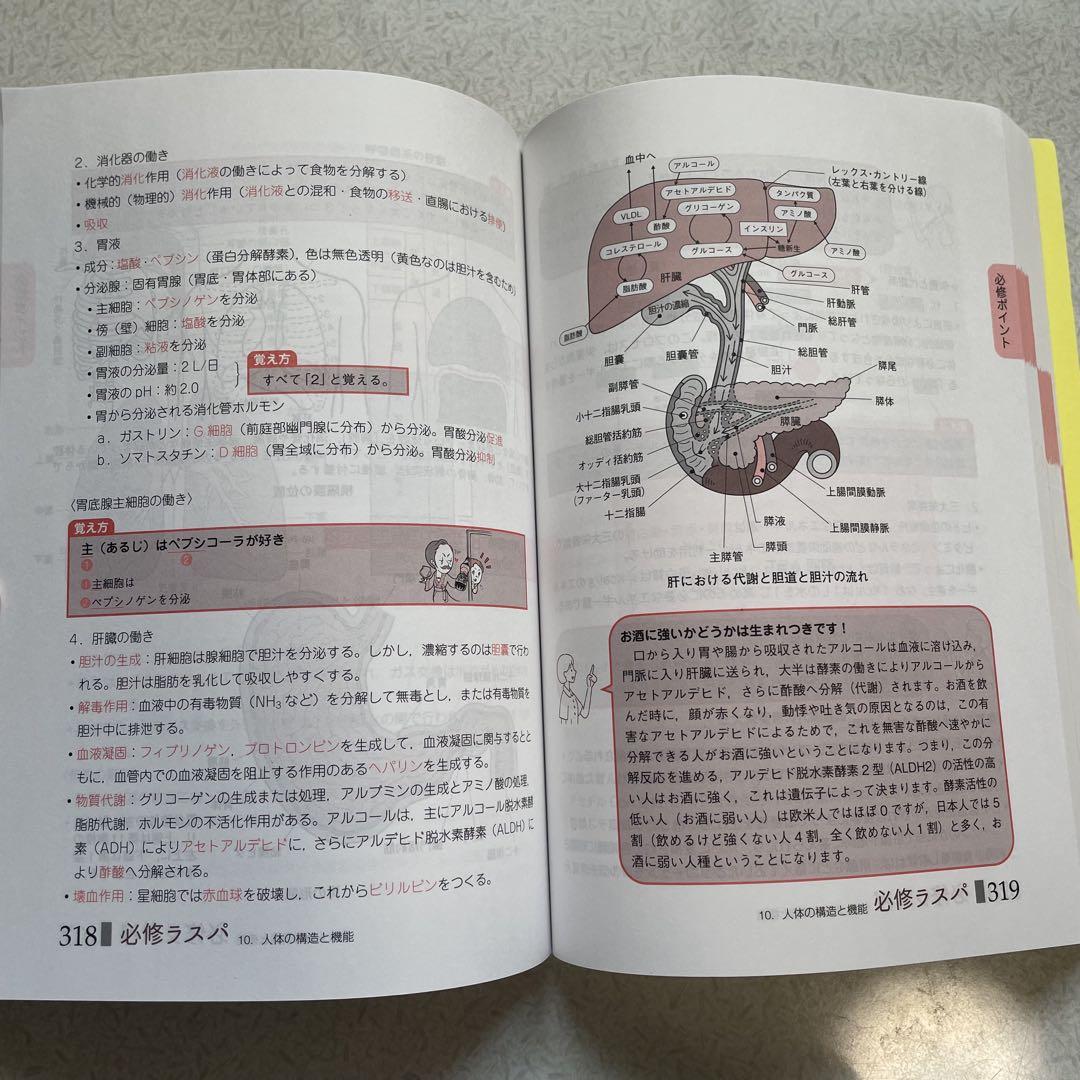 2．消化器の働き
・化学的消化作用（消化液の働きによって食物を分解する）
・機械的（物理的）消化作用（消化液との混和・食物の移送・直腸における排便）
・吸収
3．胃液
・成分：塩酸・ペプシン（蛋白分解酵素），色は無色透明（黄色なのは胆汁を含むため）
・分泌腺：固有胃腺（胃底・胃体部にある）
・主細胞：ペプシノゲンを分泌
・傍（壁）細胞：塩酸を分泌
・副細胞：粘液を分泌
・胃液の分泌量：2 L/日
・胃液の pH：約 2.0
覚え方
すべて「2」と覚える。
・胃から分泌される消化管ホルモン
a．ガストリン：G 細胞（前庭部幽門腺に分布）から分泌。胃酸分泌促進
b．ソマトスタチン：D 細胞（胃全域に分布）から分泌。胃酸分泌抑制
〈胃底腺主細胞の働き〉
覚え方
主（あるじ）はペプシコーラが好き
❶ ❷
❶主細胞は
❷ペプシノゲンを分泌
4．肝臓の働き
・胆汁の生成：肝細胞は腺細胞で胆汁を分泌する。しかし，濃縮するのは胆嚢で行わ
れる。胆汁は脂肪を乳化して吸収しやすくする。
・解毒作用：血液中の有毒物質（NH₃など）を分解して無毒とし，または有毒物質を
胆汁中に排泄する。
・血液凝固：フィブリノゲン，プロトロンビンを生成して，血液凝固に関与するとと
もに，血管内での血液凝固を阻止する作用のあるヘパリンを生成する。
・物質代謝：グリコーゲンの生成または処理，アルブミンの生成とアミノ酸の処理，
脂肪代謝，ホルモンの不活化作用がある。アルコールは，主にアルコール脱水素酵
素（ADH）によりアセトアルデヒドに，さらにアルデヒド脱水素酵素（ALDH）に
より酢酸へ分解される。
・壊血作用：星細胞では赤血球を破壊し，これからビリルビンをつくる。
318 必修ラスパ 10．人体の構造と機能
血中へ
アルコール
レックス・カントリー線
（左葉と右葉を分ける線）
アセトアルデヒド
タンパク質
VLDL
グリコーゲン
アミノ酸
酢酸
インスリン
コレステロール
グルコース
糖新生
アミノ酸
脂肪酸
肝臓
グルコース
脂肪酸
胆汁の濃縮
肝管
肝動脈
総肝管
門脈
胆嚢
胆嚢管
総胆管
胆汁
膵尾
副膵管
膵体
小十二指腸乳頭
膵臓
総胆管括約筋
オッディ括約筋
大十二指腸乳頭
（ファーター乳頭）
十二指腸
上腸間膜動脈
膵液
上腸間膜静脈
主膵管
膵頭
肝における代謝と胆道と胆汁の流れ
お酒に強いかどうかは生まれつきです！
口から入り胃や腸から吸収されたアルコールは血液に溶け込み，
門脈に入り肝臓に送られ，大半は酵素の働きによりアルコールから
アセトアルデヒド，さらに酢酸へ分解（代謝）されます。お酒を飲
んだ時に，顔が赤くなり，動悸や吐き気の原因となるのは，この有
害なアセトアルデヒドによるためで，これを無害な酢酸へ速やかに
分解できる人がお酒に強いということになります。つまり，この分
解反応を進める，アルデヒド脱水素酵素 2 型（ALDH2）の活性の高
い人はお酒に強く，これは遺伝子によって決まります。酵素活性の
低い人（お酒に弱い人）は欧米人ではほぼ 0 ですが，日本人では 5
割（飲めるけど強くない人 4 割，全く飲めない人 1 割）と多く，お
酒に弱い人種ということになります。
10．人体の構造と機能 必修ラスパ 319
必修ポイント